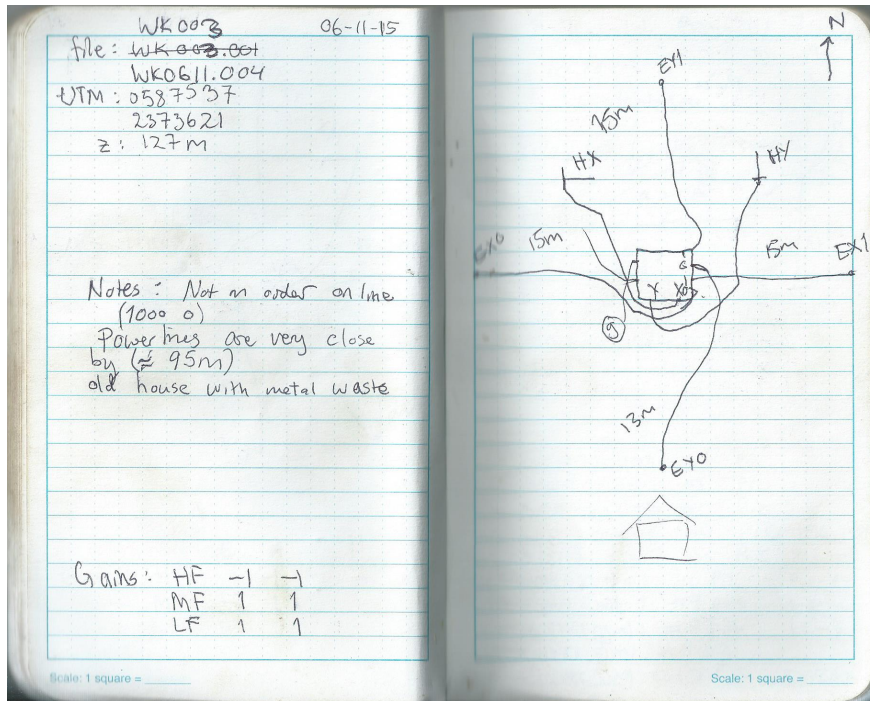 WK003 06-11-15
file: WK003.001
WK0611.004
UTM: 0587537
2373621
z: 127m
Notes: Not in order on line
(1000 0)
Powerlines are very close
by (≈ 95m)
old house with metal waste
Gains: HF -1 -1
MF 1 1
LF 1 1
Scale: 1 square = ______
N
EY1
15m
HX
HY
EX0
15m
15m
EX1
G
Y X
9
13m
EY0
Scale: 1 square = ______